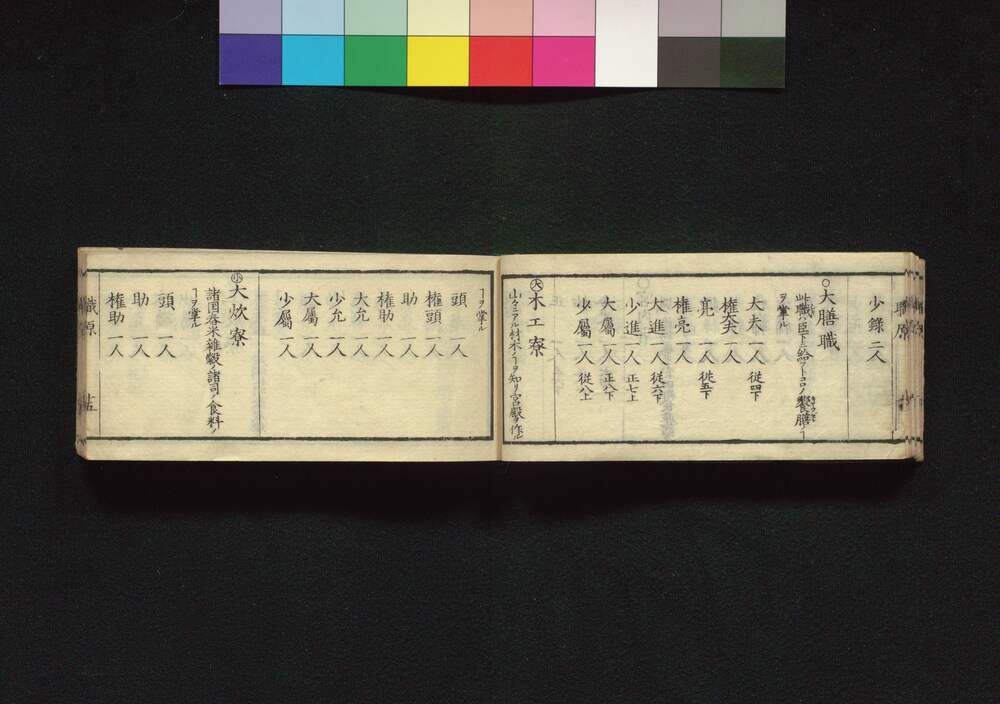 職原
少録 二人
○大膳職
此職ハ臣下ニ給フトコロノ饗膳ノヿ
ヲ掌ル
大夫 一人 従四下
権大夫 一人
亮 一人 従五下
権亮 一人
大進 一人 従六下
少進 一人 正七上
大屬 一人 正八下
少屬 一人 従八上
大 木工寮
山々ニアル材木ノヿヲ知リ宮殿ヲ作ル
ヿヲ掌ル
頭 一人
権頭 一人
助 一人
権助 一人
大允 一人
少允 一人
大屬 一人
少屬 一人
小 大炊寮
諸国舂米雑穀ノ諸司ノ食料ノ
ヿヲ掌ル
頭 一人
助 一人
権助 一人
職原